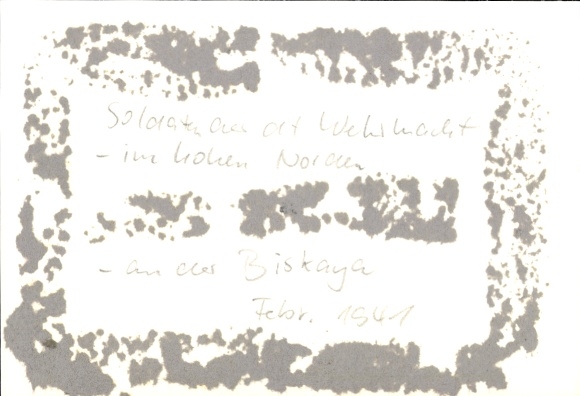 Soldaten der dt Wehrmacht
- im hohen Norden
- an der Biskaya
Febr. 1941